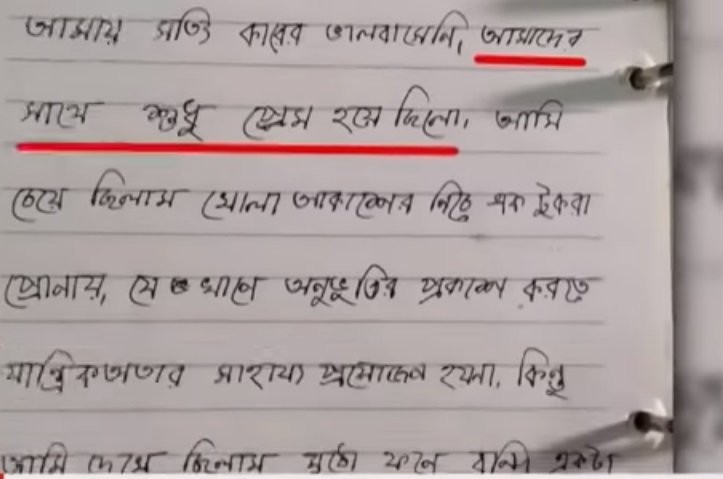 আমায় সত্যি কারের ভালবাসেনি, আমাদের
সাথে শুধু প্রেম হয়ে ছিলো, আমি
চেয়ে ছিলাম খোলা আকাশের নিচে এক টুকরা
প্রোনায়, যে খানে অনুভুতির প্রকাশে করতে
যান্ত্রিকতাতার সাহায্য প্রয়োজেন হয়না, কিন্তু
আমি দেখে ছিলাম মুঠো ফনে বন্দি একটা